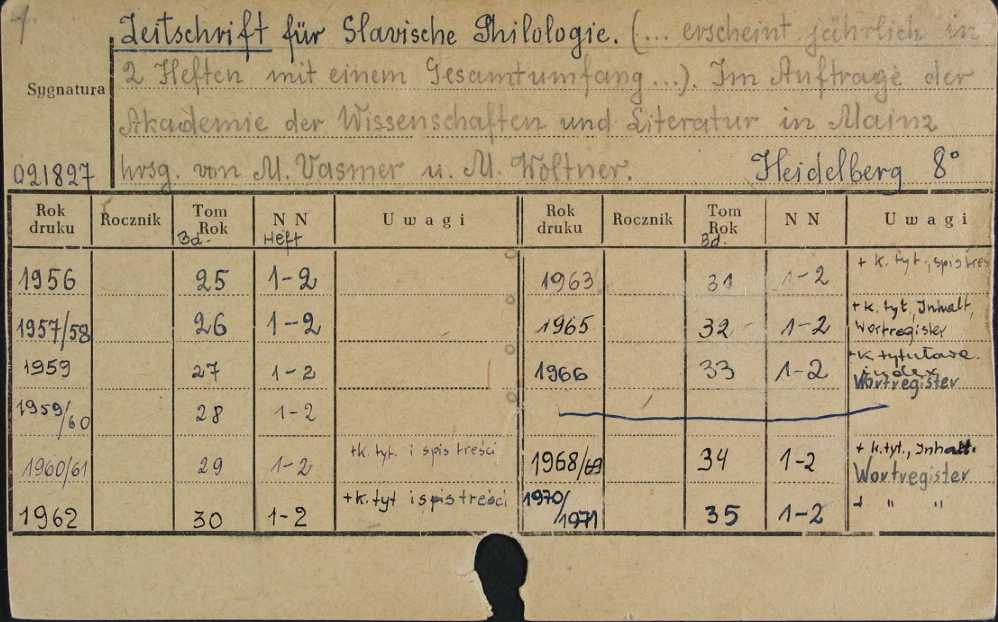 1.
Zeitschrift für Slavische Philologie. (... erscheint jährlich in
2 Heften mit einem Gesamtumfang...). Im Auftrage der
Sygnatura
Akademie der Wissenschaften und Literatur in Mainz
021827 hrsg. von M. Vasmer u. M. Woltner. Heidelberg 8°
Rok druku Rocznik Tom Rok Bd. N N Heft Uwagi Rok druku Rocznik Tom Rok Bd. N N Uwagi
1956 25 1-2 1963 31 1-2 + k. tyt., spis treś
1957/58 26 1-2 1965 32 1-2 + k. tyt, Inhalt, Wortregister
1959 27 1-2 1966 33 1-2 + k tytułowa. index Wortregister
1959/60 28 1-2
1960/61 29 1-2 + k. tyt. i spis treści 1968/69 34 1-2 + k.tyt., Inhalt. Wortregister
1962 30 1-2 + k. tyt i spis treści 1970/1971 35 1-2 + " "